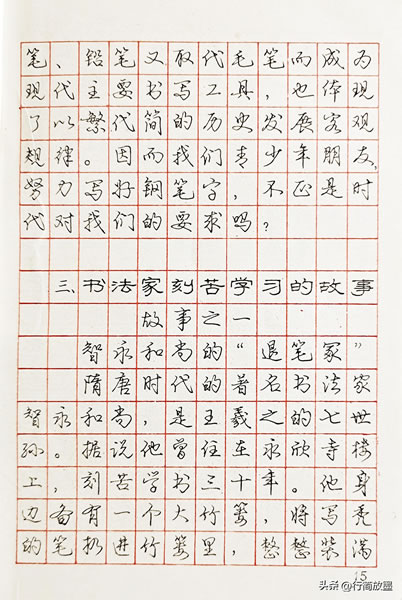 笔、铅笔又取代毛笔,而成为
现代主要书写工具,也体现
了以繁代简的历史发展客观
规律。因而我们青少年朋友,
努力写好钢笔字,不正是时
代对我们的要求吗?
三、书法家刻苦学习的故事
故事之一
智永和尚的“退笔冢”
隋唐时代的著名书法家
智永和尚,是王羲之的七世
孙。据说他曾住在永欣寺楼
上,刻苦学书三十年。他身
边备有一个大竹篓,将写秃
的笔扔进竹篓里,整整装满
15
头条@行简放墨